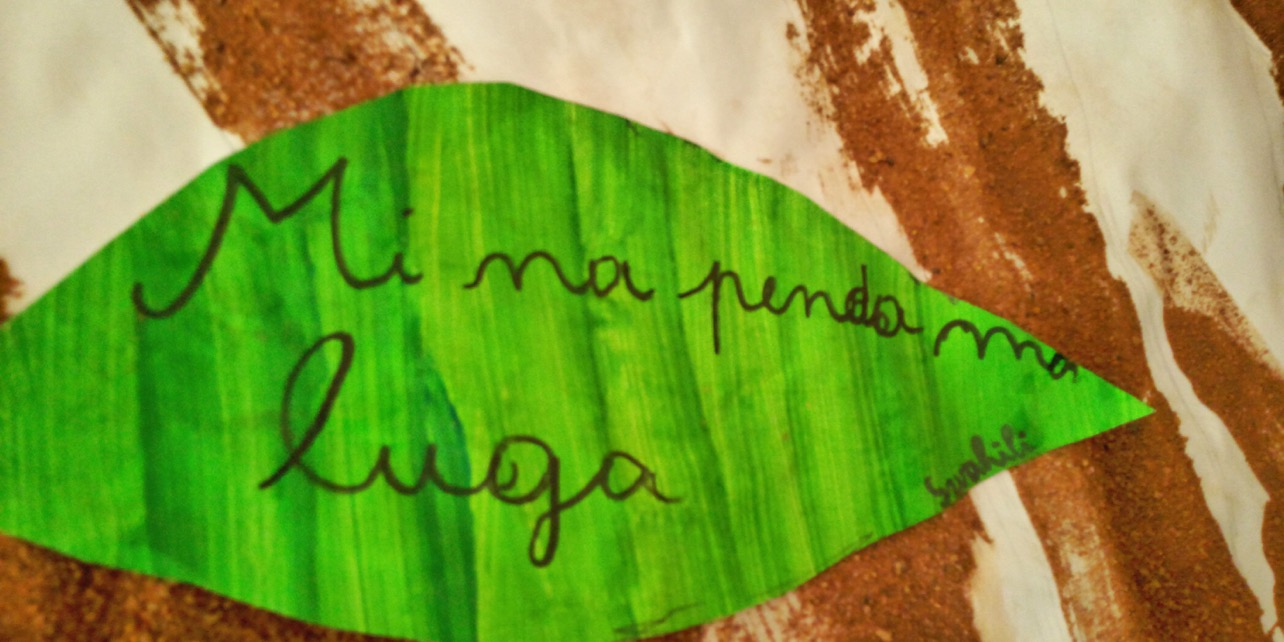 Mi na penda ma
luga
Swahili